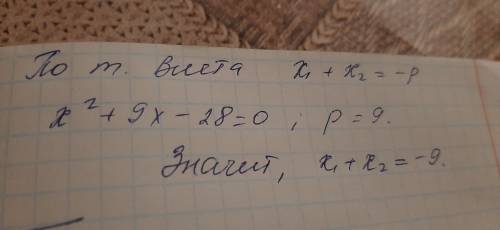 По т. Виета x₁ + x₂ = -p
x² + 9x - 28 = 0 ; p = 9.
Значит, x₁ + x₂ = -9.